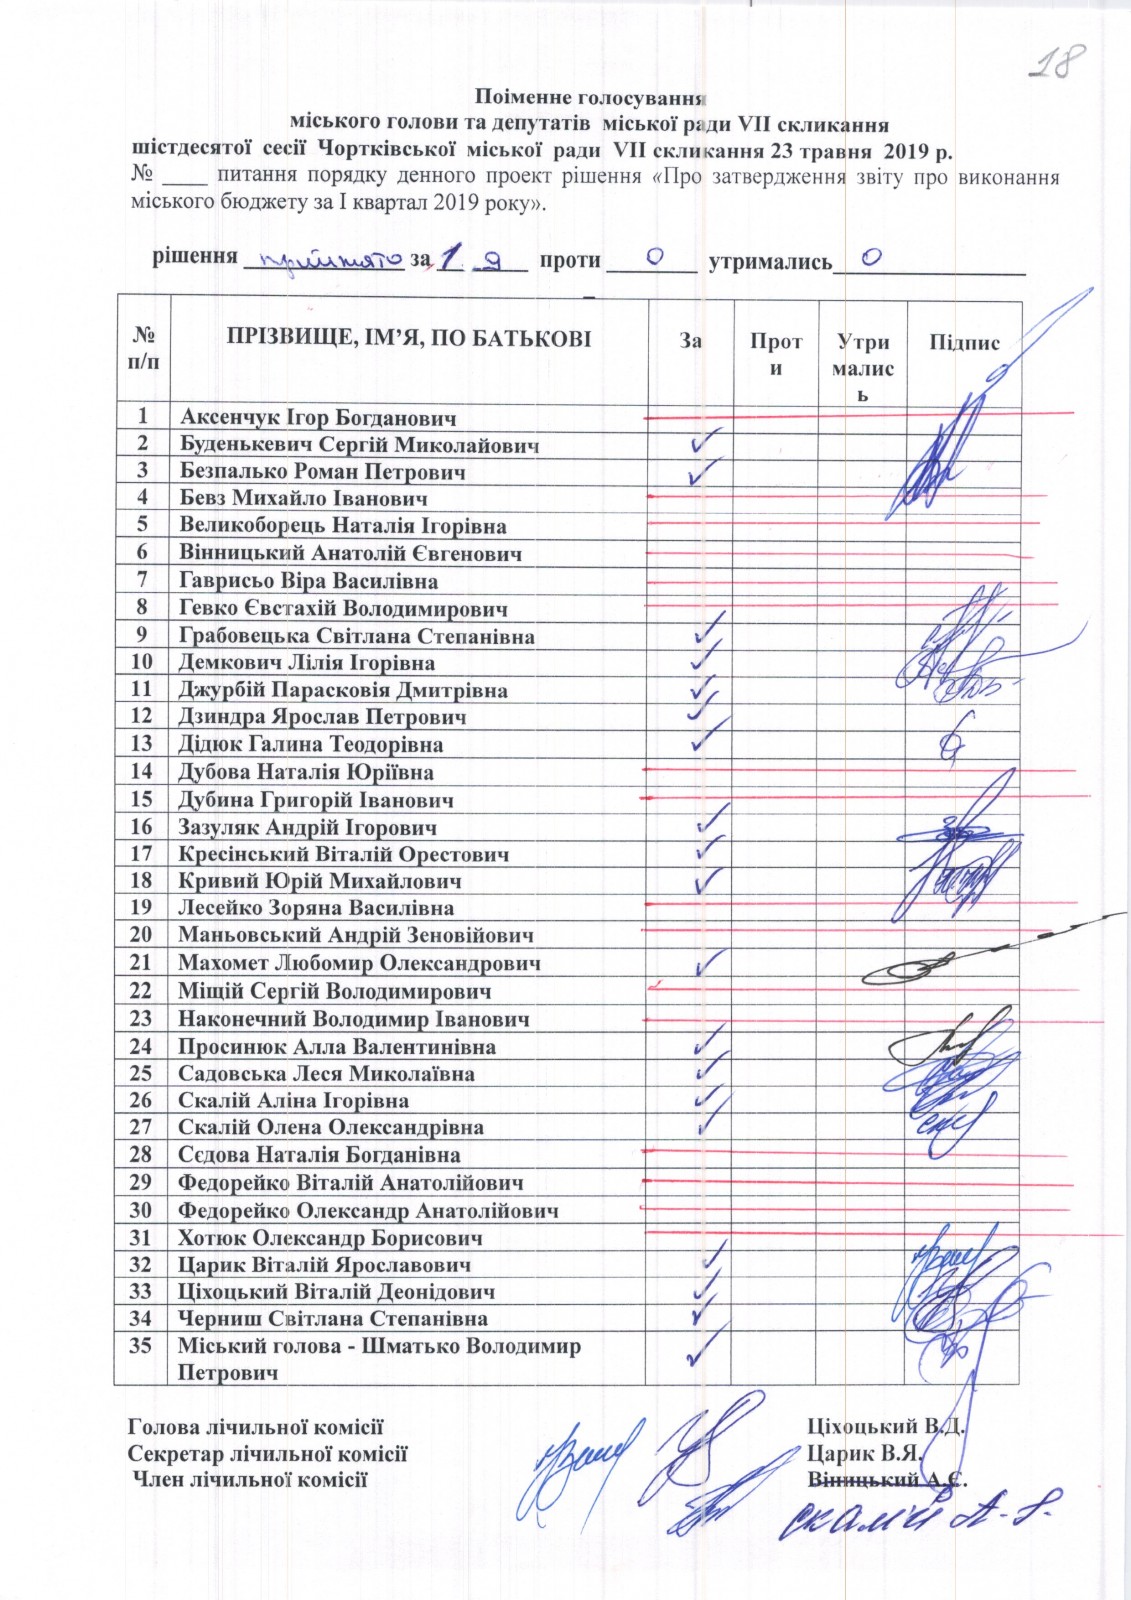 18
Поіменне голосування
міського голови та депутатів міської ради VII скликання
шістдесятої сесії Чортківської міської ради VII скликання 23 травня 2019 р.
№ ____ питання порядку денного проект рішення «Про затвердження звіту про виконання
міського бюджету за І квартал 2019 року».
рішення прийнято за 19 проти 0 утримались 0
№ п/п ПРІЗВИЩЕ, ІМ’Я, ПО БАТЬКОВІ За Проти Утрималась Підпис
1 Аксенчук Ігор Богданович
2 Буденькевич Сергій Миколайович ✓
3 Безпалько Роман Петрович ✓
4 Бевз Михайло Іванович
5 Великоборець Наталія Ігорівна
6 Вінницький Анатолій Євгенович
7 Гаврисьо Віра Василівна
8 Гевко Євстахій Володимирович
9 Грабовецька Світлана Степанівна ✓
10 Демкович Лілія Ігорівна ✓
11 Джурбій Парасковія Дмитрівна ✓
12 Дзиндра Ярослав Петрович ✓
13 Дідюк Галина Теодорівна ✓
14 Дубова Наталія Юріївна
15 Дубина Григорій Іванович
16 Зазуляк Андрій Ігорович ✓
17 Кресінський Віталій Орестович ✓
18 Кривий Юрій Михайлович ✓
19 Лесейко Зоряна Василівна
20 Маньовський Андрій Зеновійович
21 Махомет Любомир Олександрович ✓
22 Міщій Сергій Володимирович
23 Наконечний Володимир Іванович
24 Просинюк Алла Валентинівна ✓
25 Садовська Леся Миколаївна ✓
26 Скалій Аліна Ігорівна ✓
27 Скалій Олена Олександрівна ✓
28 Сєдова Наталія Богданівна
29 Федорейко Віталій Анатолійович
30 Федорейко Олександр Анатолійович
31 Хотюк Олександр Борисович
32 Царик Віталій Ярославович ✓
33 Ціхоцький Віталій Деонідович ✓
34 Черниш Світлана Степанівна ✓
35 Міський голова - Шматько Володимир
Петрович ✓
Голова лічильної комісії Ціхоцький В.Д.
Секретар лічильної комісії Царик В.Я.
Член лічильної комісії Віницький А.Є.
Скалій А.І.